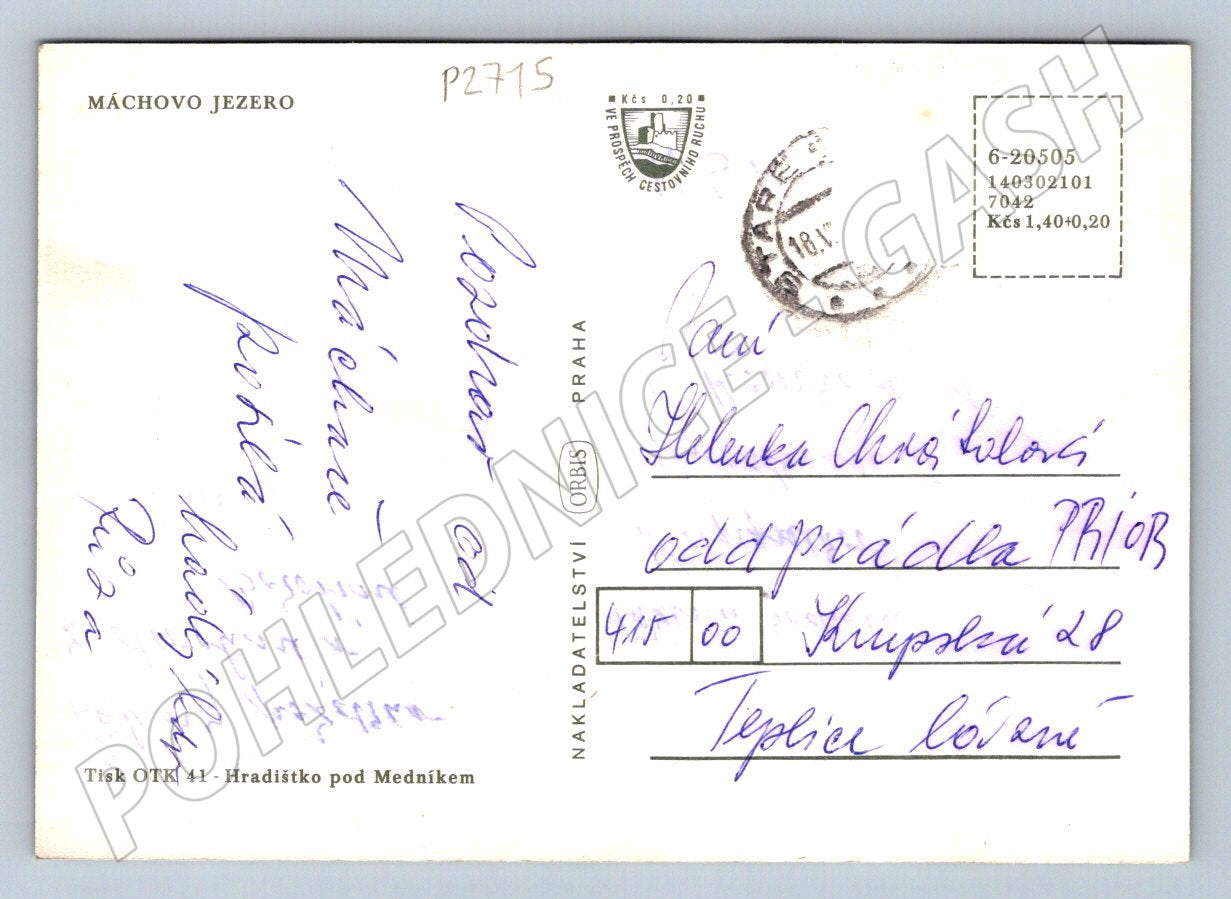 P2715
MÁCHOVO JEZERO
Kčs 0,20
VE PROSPĚCH CESTOVNÍHO RUCHU
STARÉ
18.V
6-20505
140302101
7042
Kčs 1,40+0,20
Pozdrav od
Máchně
posílá
Růža
NAKLADATELSTVÍ ORBIS PRAHA
Paní
Helenka Chvátalová
odd prádla PRIOR
415 00 Krupská 28
Teplice lázně
Tisk OTK 41 - Hradištko pod Medníkem
POHLEDNICE - GASH